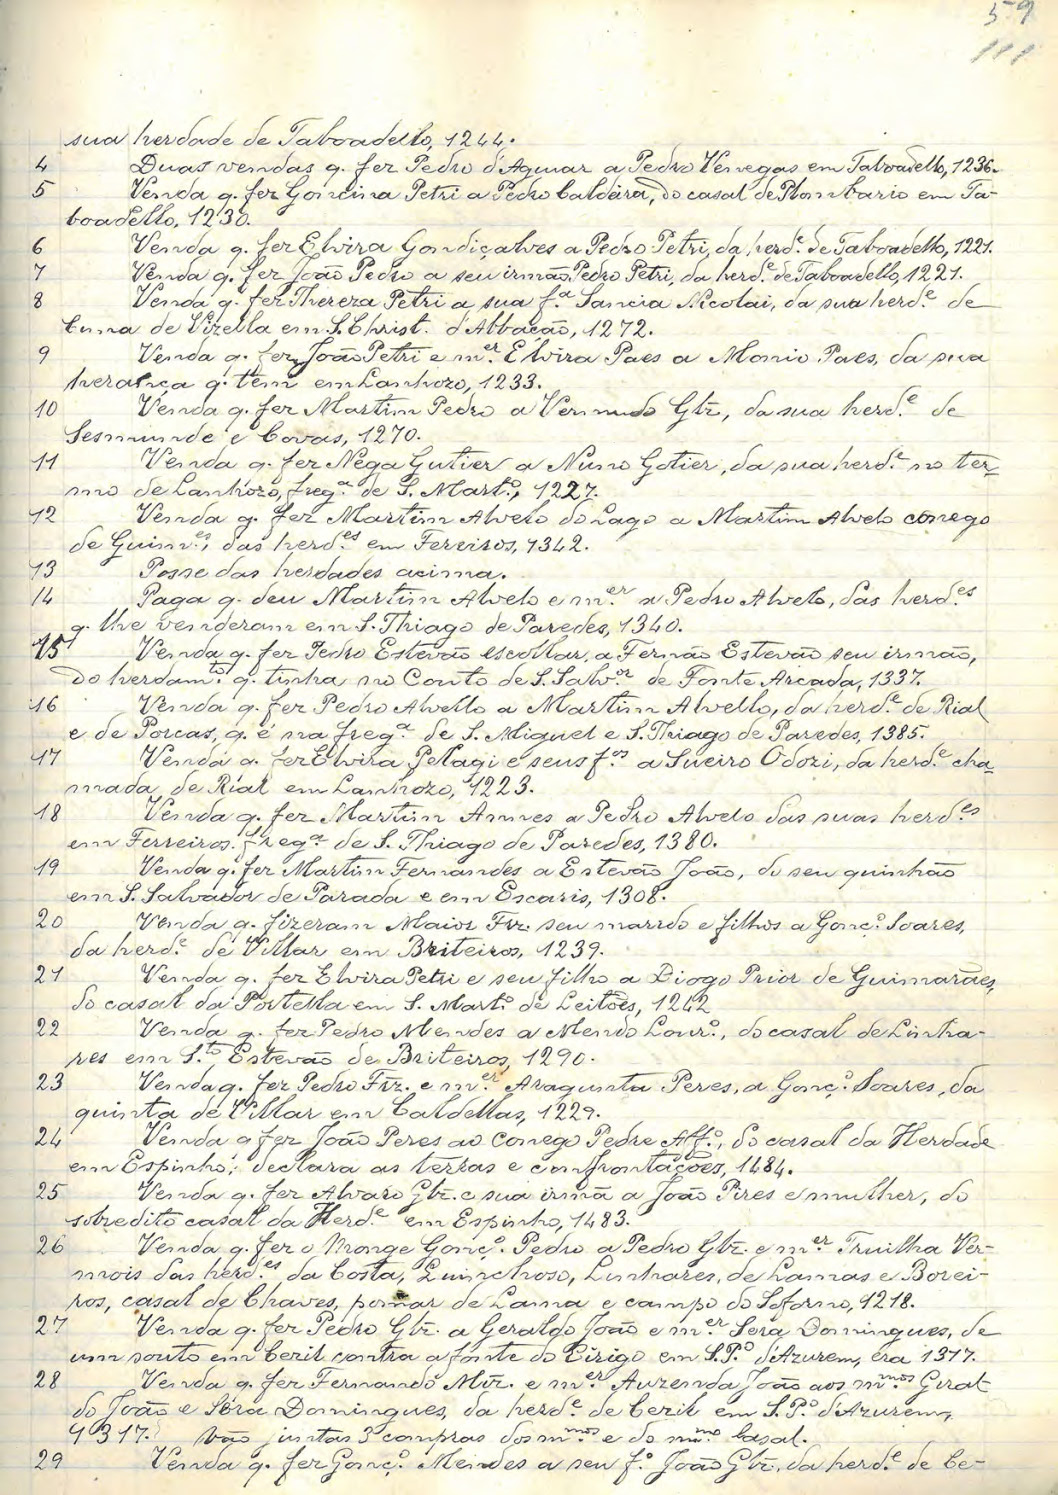 59
111
sua herdade de Taboadello, 1244.
4 Duas vendas q. fez Pedro d'Aguiar a Pedro Venegas em Taboadello, 1236.
5 Venda q. fez Goncina Petri a Pedro Caldeira, do casal de Plombario em Ta-
boadello, 1230.
6 Venda q. fez Elvira Gondiçalves a Pedro Petri, da herd.e de Taboadello, 1221.
7 Venda q. fez João Pedro a seu irmão Pedro Petri, da herd.e de Taboadello, 1221.
8 Venda q. fez Thereza Petri a sua f.a Sancia Nicolai, da sua herd.e de
Cuna de Vizella em S. Christ. d'Abbação, 1272.
9 Venda q. fez João Petri e m.er Elvira Paes a Monio Paes, da sua
herança q. tem em Lanhozo, 1233.
10 Venda q. fez Martim Pedro a Vermudo Glz., da sua herd.e de
Sesmunde e Covas, 1270.
11 Venda q. fez Nega Gutier a Nuno Gotier, da sua herd.e no ter-
mo de Lanhozo, freg.a de S. Mart.o, 1227.
12 Venda q. fez Martim Alvelo do Lago a Martim Alvelo conego
de Guim.es, das herd.es em Fereiros, 1342.
13 Posse das herdades acima.
14 Paga q. deu Martim Alvelo e m.er a Pedro Alvelo, das herd.es
q. lhe venderam em S. Thiago de Paredes, 1340.
15 Venda q. fez Pedro Estevão escollar, a Fernão Estevão seu irmão,
do herdam.to q. tinha no Couto de S. Salv.or de Fonte Arcada, 1337.
16 Venda q. fez Pedro Alvello a Martim Alvello, da herd.e de Rial
e de Porcas, q. é na freg.a de S. Miguel e S. Thiago de Paredes, 1385.
17 Venda q. fez Elvira Pelagi e seus f.os a Sueiro Odozi, da herd.e cha-
mada de Rial em Lanhozo, 1223.
18 Venda q. fez Martim Annes a Pedro Alvelo das suas herd.es
em Ferreiros, freg.a de S. Thiago de Paredes, 1380.
19 Venda q. fez Martim Fernandes a Estevão João, do seu quinhão
em S. Salvador de Parada e em Escaris, 1308.
20 Venda q. fizeram Maior Frz. seu marido e filhos a Gonç.o Soares,
da herd.e de Villar em Briteiros, 1239.
21 Venda q. fez Elvira Petri e seu filho a Diogo Prior de Guimarães,
do casal da Portella em S. Mart.o de Leitões, 1242
22 Venda q. fez Pedro Mendes a Mendo Lour.o, do casal de Linha-
res em S.to Estevão de Briteiros, 1290.
23 Venda q. fez Pedro Frz. e m.er Aragunta Peres, a Gonç.o Soares, da
quinta de Villar em Caldellas, 1229.
24 Venda q fez João Peres ao conego Pedre Aff.o, do casal da Herdade
em Espinho; declara as terras e confrontações, 1484.
25 Venda q. fez Alvaro Glz. e sua irmã a João Pires e mulher, do
sobredito casal da Herd.e em Espinho, 1483.
26 Venda q. fez o Monge Gonç.o Pedro a Pedro Glz. e m.er Truilha Ver-
mois das herd.es da Costa, Quinchoso, Linhares, de Lamas e Borei-
ros, casal de Chaves, pomar de Lama e campo do Soforno, 1218.
27 Venda q. fez Pedro Glz. a Geraldo João e m.er Sera Domingues, de
um souto em Ceril contra a fonte do Cirigo em S. P.o d'Azurem, era 1317.
28 Venda q. fez Fernando Miz. e m.er Auzenda João aos m.mos Geral-
do João e Sera Domingues, da herd.e de Ceril em S. P.o d'Azurem,
1317. Vão juntas 3 compras dos m.mos e do m.mo Casal.
29 Venda q. fez Gonç.o Mendes a seu f.o João Glz., da herd.e de Ce-